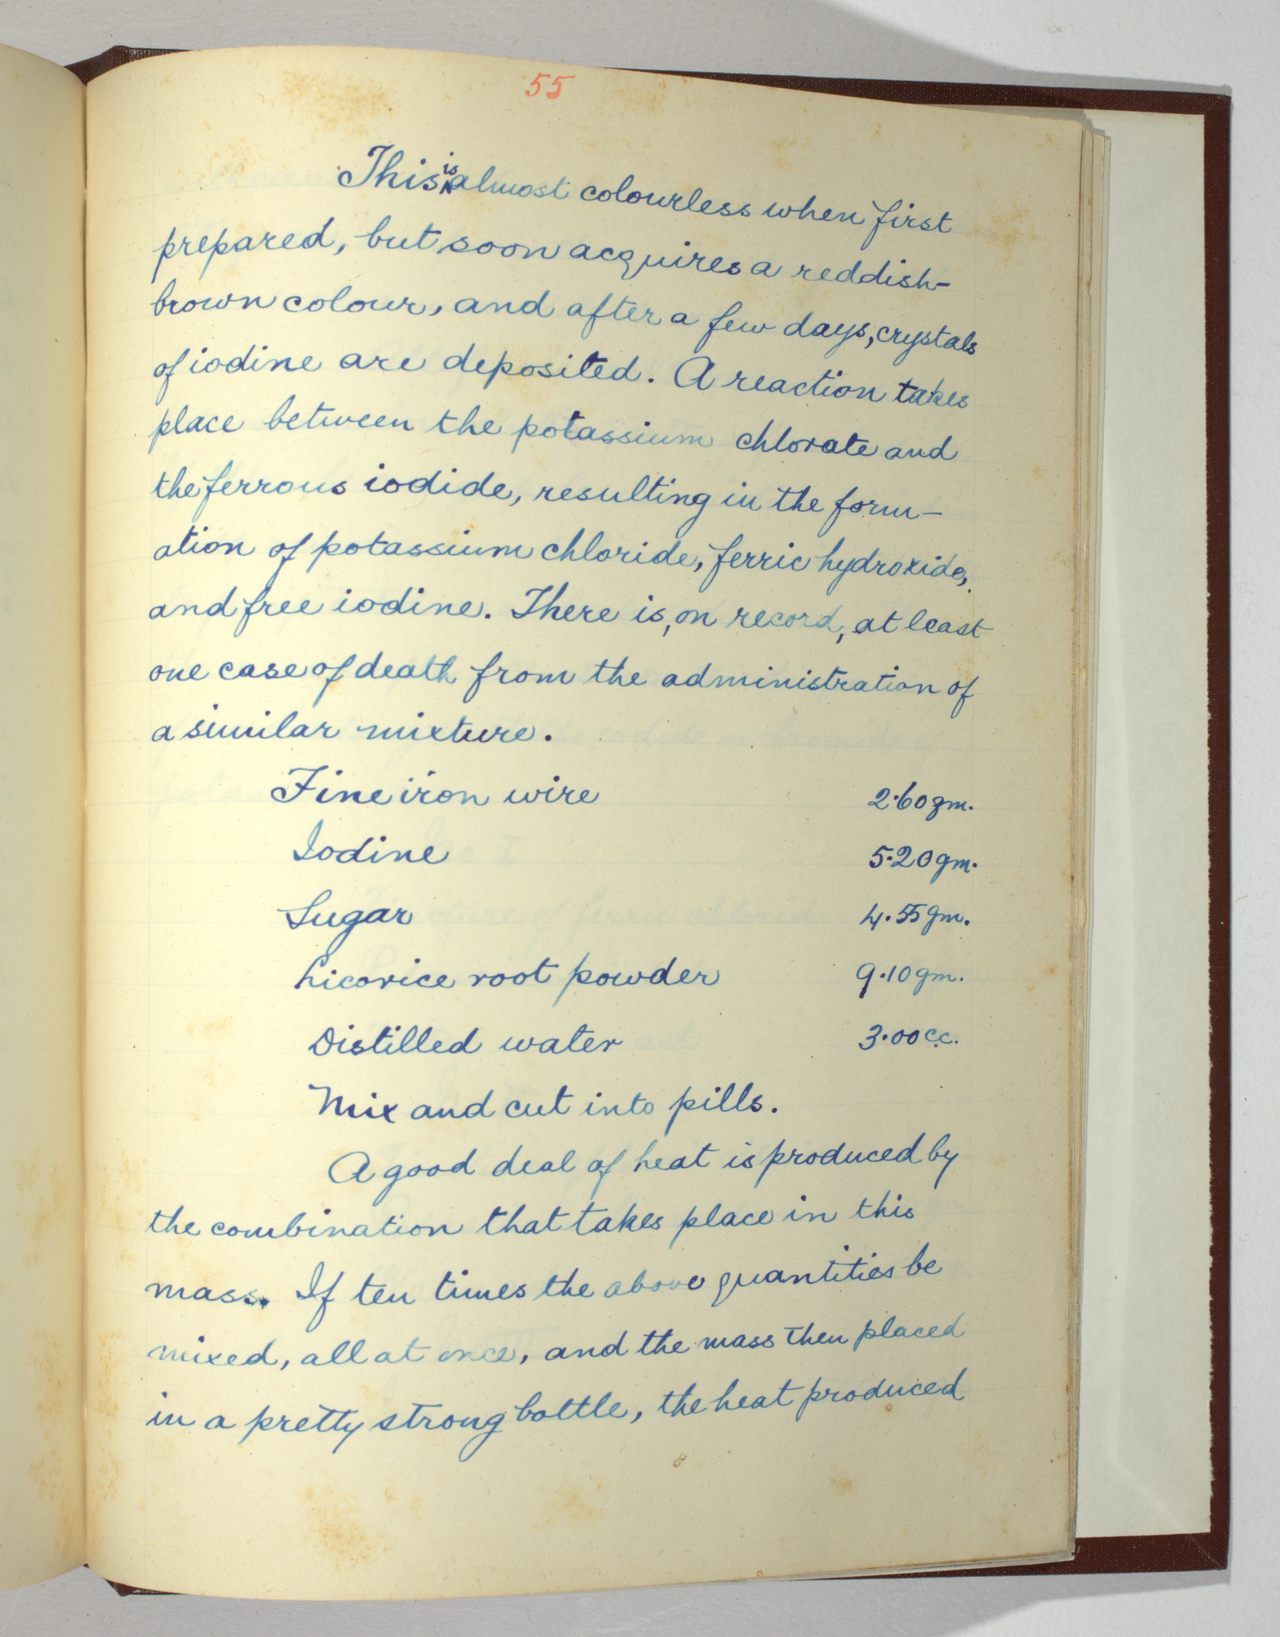 55
This is almost colourless when first
prepared, but soon acquires a reddish-
brown colour, and after a few days, crystals
of iodine are deposited. A reaction takes
place between the potassium chlorate and
the ferrous iodide, resulting in the form-
ation of potassium chloride, ferric hydroxide,
and free iodine. There is, on record, at least
one case of death from the administration of
a similar mixture.
Fine iron wire 2.60 gm.
Iodine 5.20 gm.
Sugar 4.55 gm.
Licorice root powder 9.10 gm.
Distilled water 3.00 c.c.
Mix and cut into pills.
A good deal of heat is produced by
the combination that takes place in this
mass. If ten times the above quantities be
mixed, all at once, and the mass then placed
in a pretty strong bottle, the heat produced